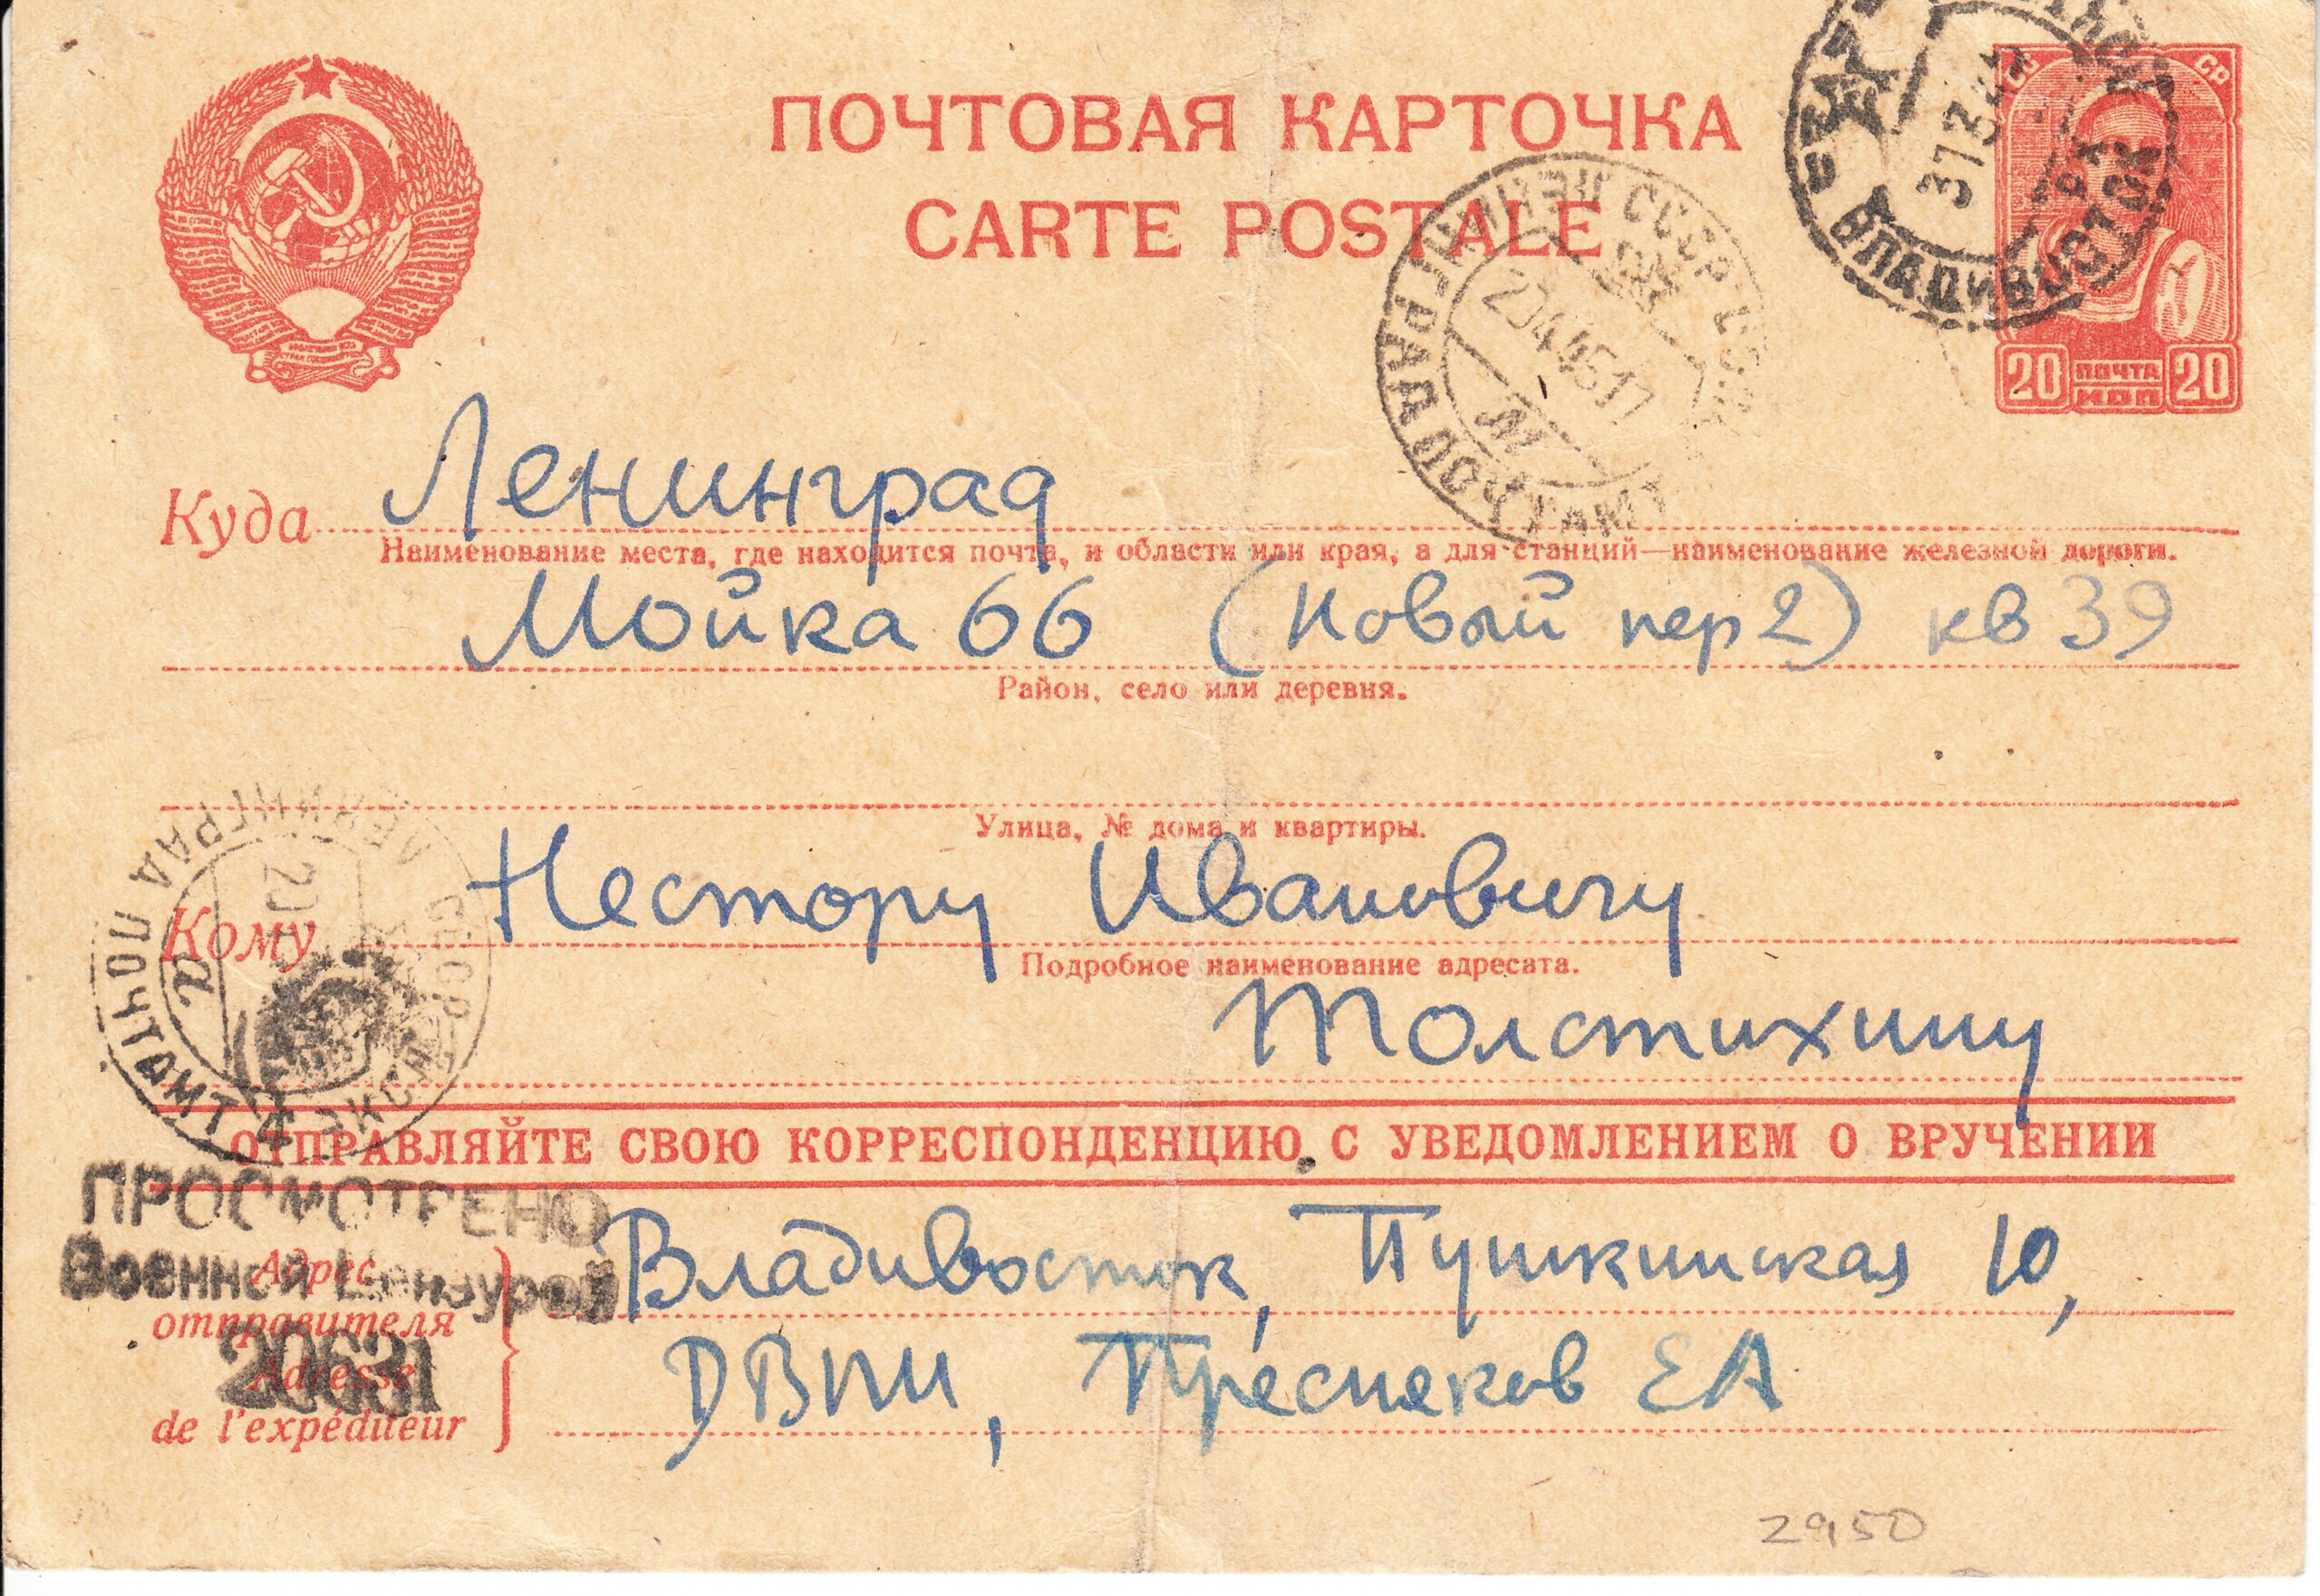 ПОЧТОВАЯ КАРТОЧКА
CARTE POSTALE
СС СР
31 3 45
ВЛАДИВОСТОК
СССР ЛЕНИНГРАД ПОЧТАМТ
20 4 45 17
20 ПОЧТА КОП 20
Куда Ленинград
Наименование места, где находится почта, и области или края, а для станций—наименование железной дороги.
Мойка 66 (Новый пер 2) кв 39
Район, село или деревня.
Улица, № дома и квартиры.
ЛЕНИНГРАД ПОЧТАМТ
СССР
20
а
Кому Нестору Ивановичу
Подробное наименование адресата.
Толстихину
ОТПРАВЛЯЙТЕ СВОЮ КОРРЕСПОНДЕНЦИЮ С УВЕДОМЛЕНИЕМ О ВРУЧЕНИИ
ПРОСМОТРЕНО
Военной Цензурой
20631
Адрес отправителя
Adresse de l'expéditeur
Владивосток, Пушкинская 10,
ДВПИ, Пресняков ЕА
2950